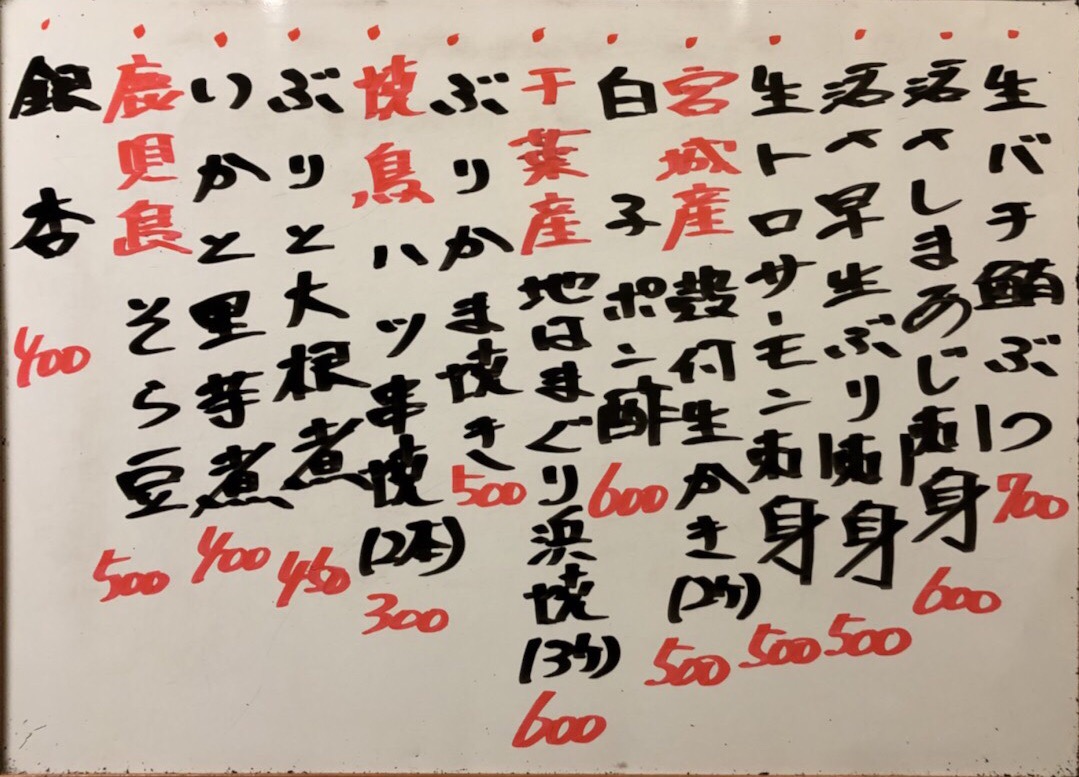 生バチ鮪ぶつ 700
活〆しまあじ刺身 600
活〆早生ぶり刺身 500
生トロサーモン刺身 500
宮城産殻付生かき(2ケ) 500
白子ポン酢 600
千葉産地はまぐり浜焼(3ケ) 600
ぶりかま焼き 500
焼鳥ハツ串焼(2本) 300
ぶりと大根煮 450
いかと里芋煮 400
鹿児島そら豆 500
銀杏 400